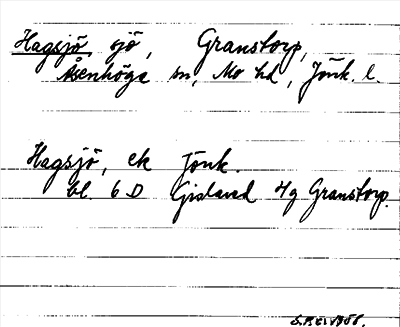 Hagsjö, sjö, Granstorp,
Åsenhöga sn, Mo hd, Jönk. l.
Hagsjö, ek Jönk.
bl. 6 D Gislaved 4g Granstorp.